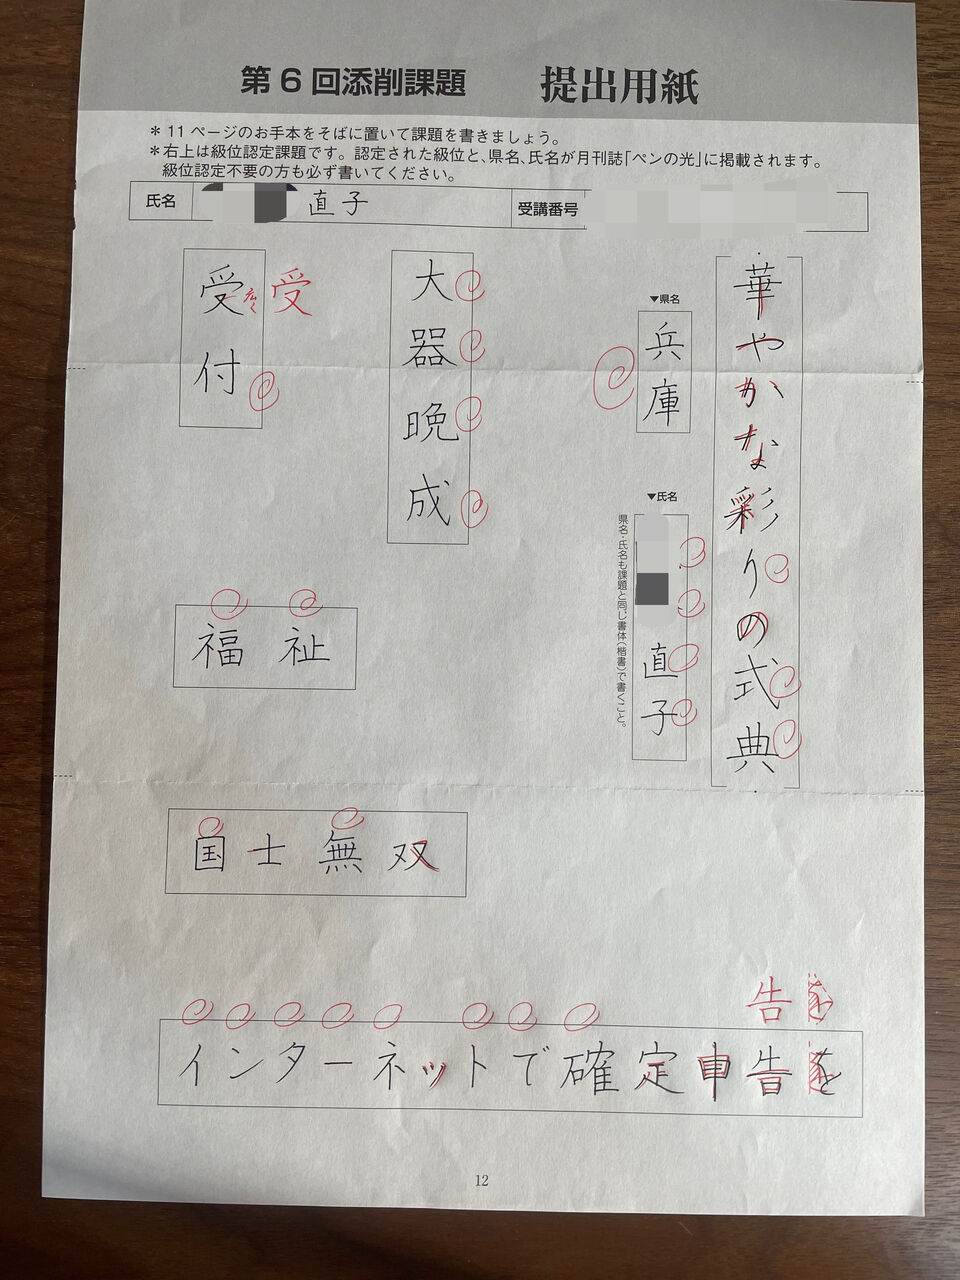 第6回添削課題 提出用紙
＊11ページのお手本をそばに置いて課題を書きましょう。
＊右上は級位認定課題です。認定された級位と、県名、氏名が月刊誌「ペンの光」に掲載されます。
級位認定不要の方も必ず書いてください。
氏名 直子 受講番号
華やかな彩りの式典
▼県名
兵庫
▼氏名
直子
県名・氏名も課題と同じ書体（楷書）で書くこと。
大器晩成
受付
受
広く
福祉
国士無双
告
インターネットで確定申告を
12